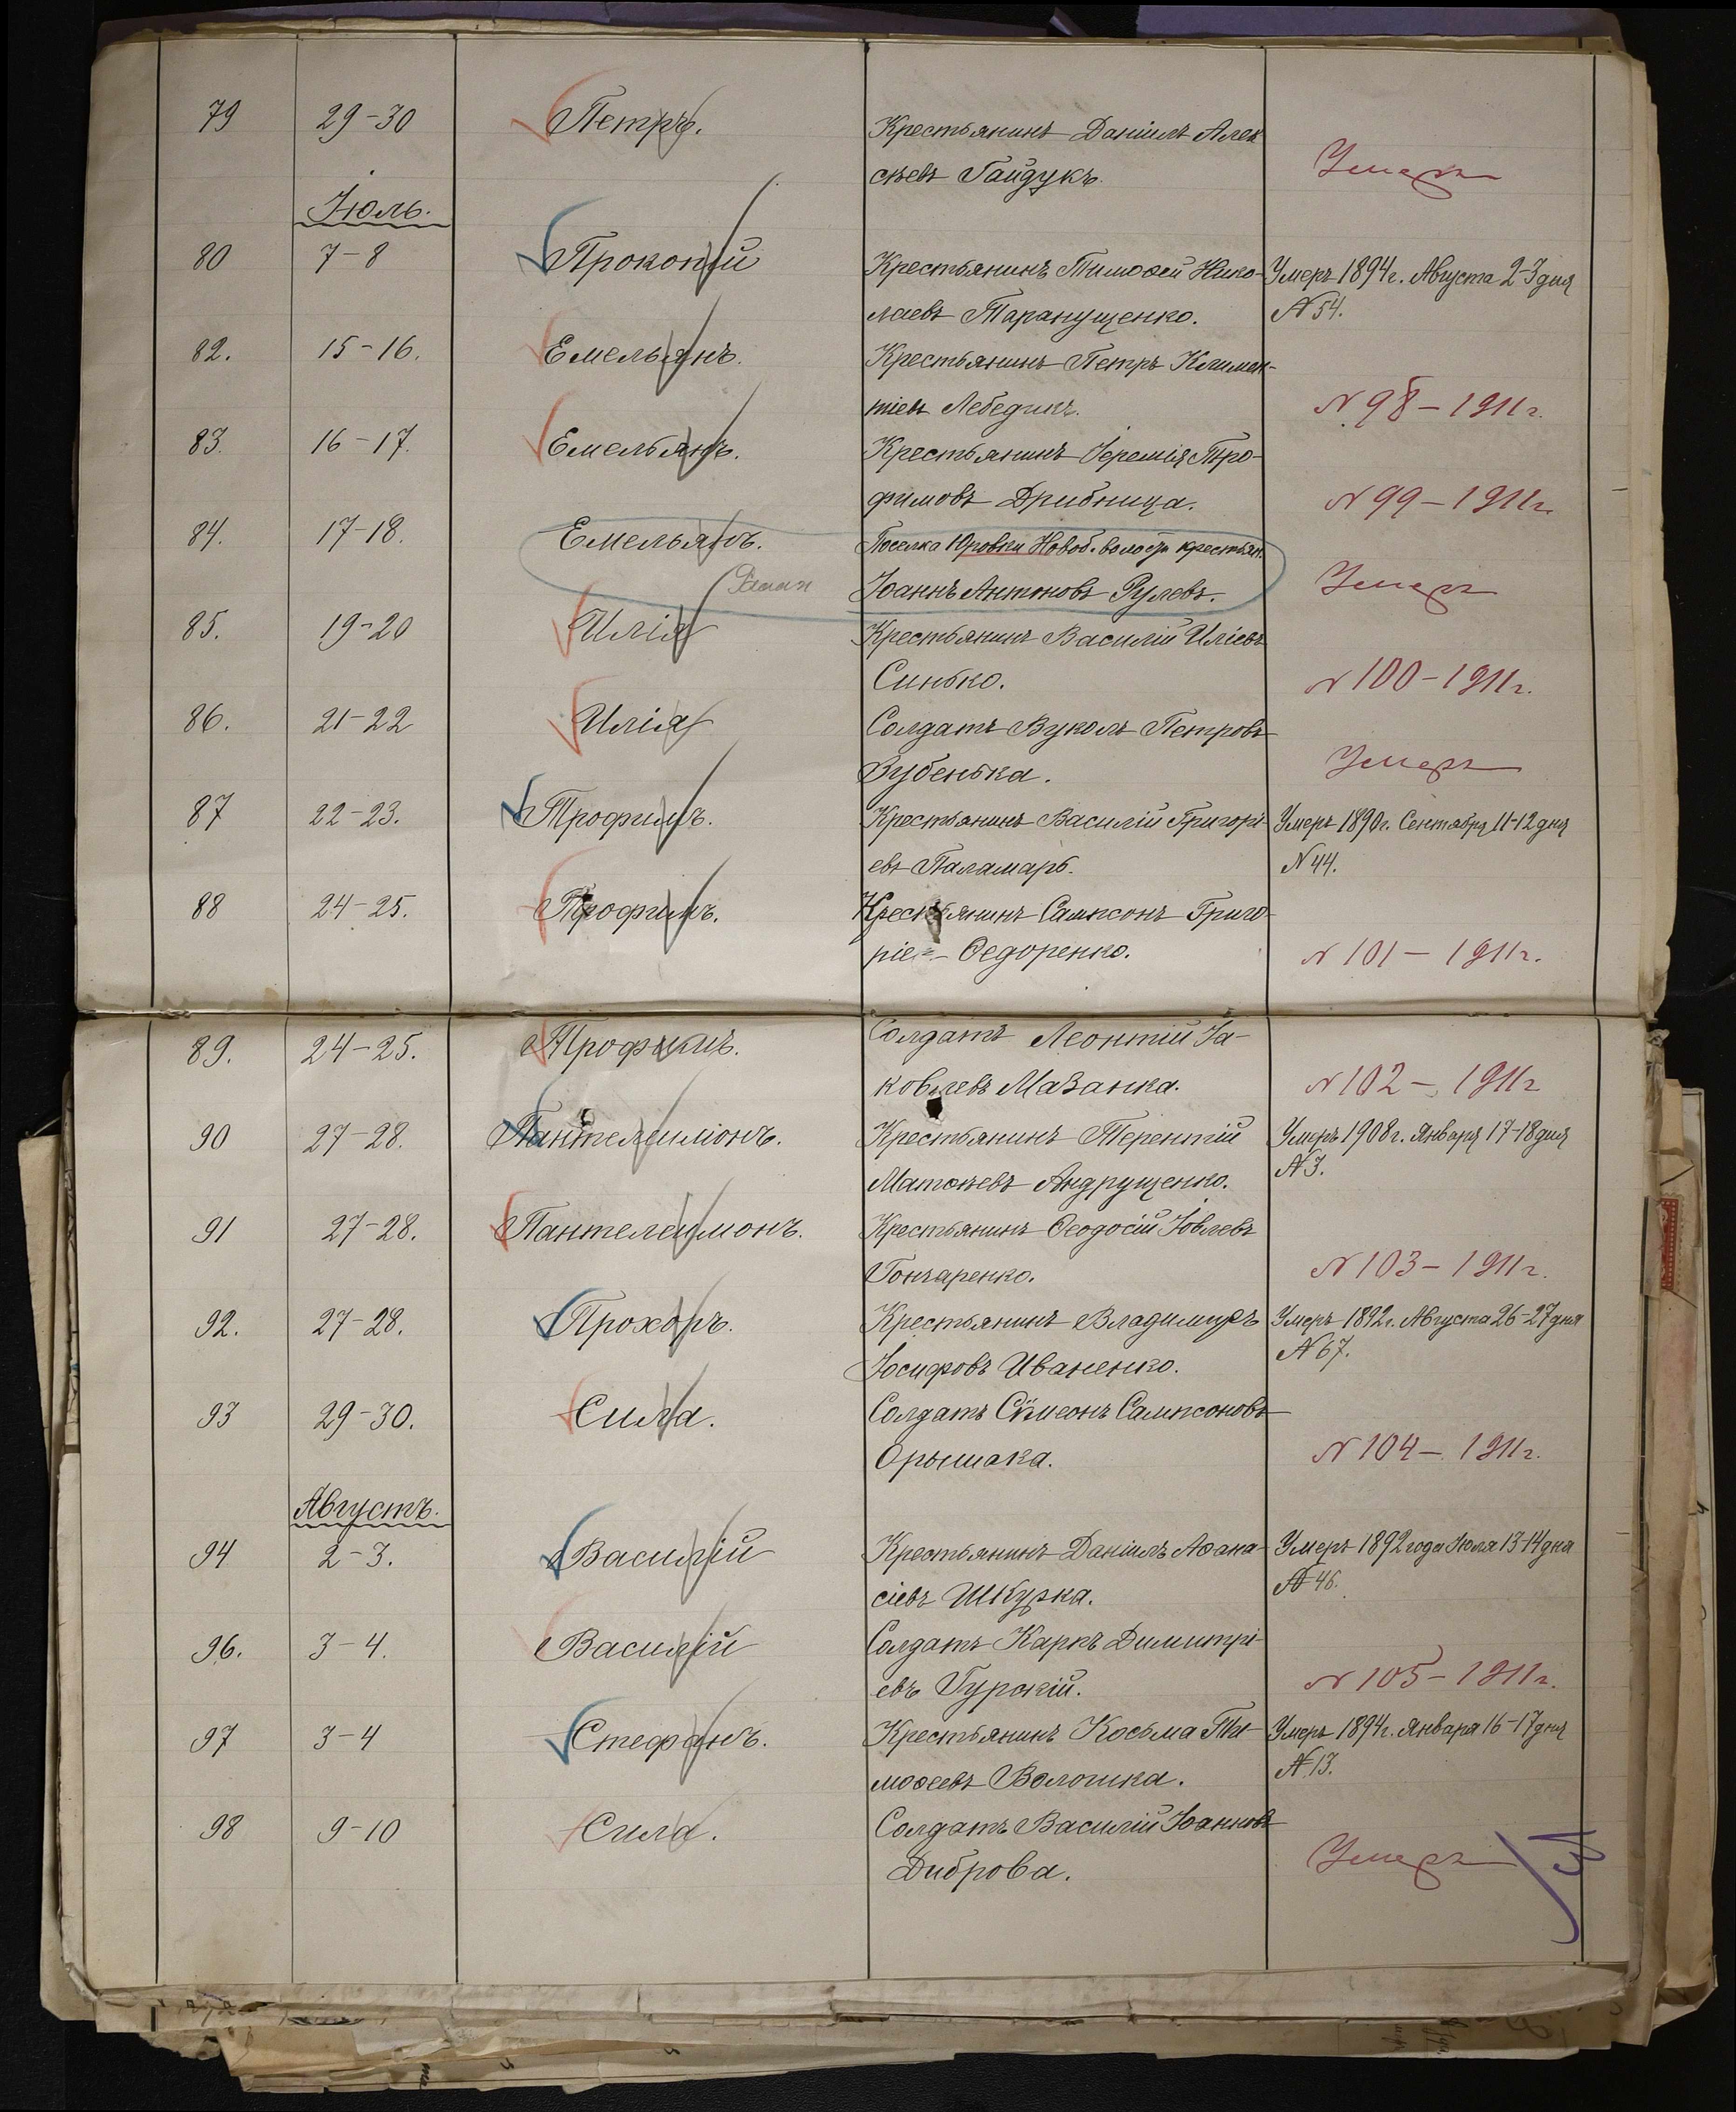 79 29-30 Петръ. Крестьянинъ Даніилъ Алек
сѣевъ Гайдукъ. Умеръ
Іюль.
80 7-8 Прокопій Крестьянинъ Тимоѳей Нико- Умеръ 1894г. Августа 2-3 дня
лаевъ Таранущенко. №54.
82. 15-16. Емельянъ. Крестьянинъ Петръ Климен-
тіевъ Лебедикъ. №98-1911г.
83. 16-17. Емельянъ. Крестьянинъ Іеремія Тро-
фимовъ Дрибница. №99-1911г.
84. 17-18. Емельянъ. Поселка Юровки Новоб. волости крестьян.
Іоаннъ Антоновъ Рулевъ. Умеръ
85. 19-20 Илія Крестьянинъ Василій Иліевъ
Синько. №100-1911г.
86. 21-22 Илія Солдатъ Вуколъ Петровъ
Зубенька. Умеръ
87 22-23. Трофимъ. Крестьянинъ Василій Григорі- Умеръ 1890г. Сентября 11-12 дня
евъ Паламарь. №44.
88 24-25. Трофимъ. Крестьянинъ Сампсонъ Григо-
ріе - Ѳедоренко. №101-1911г.
89. 24-25. Трофимъ. Солдатъ Леонтій Іа-
ковлевъ Мазанка. №102-1911г
90 27-28. Пантелеимонъ. Крестьянинъ Терентій Умеръ 1908г. Января 17-18 дня
Матѳеевъ Андрущенко. №3.
91 27-28. Пантелеимонъ. Крестьянинъ Ѳеодосій Іовлевъ
Гончаренко. №103-1911г.
92. 27-28. Прохоръ. Крестьянинъ Владимиръ Умеръ 1892г. Августа 26-27 дня
Іосифовъ Иваненко. №67.
93 29-30. Сила. Солдатъ Сѵмеонъ Сампсоновъ
Орышака. №104-1911г.
Августъ.
94 2-3. Василій Крестьянинъ Даніилъ Аѳана- Умеръ 1892 года Іюля 13-14 дня
сіевъ Шкурка. №46.
96. 3-4. Василій Солдатъ Карпъ Димитрі-
евъ Гурскій. №105-1911г.
97 3-4 Стефанъ. Крестьянинъ Косьма Ти- Умеръ 1894г. Января 16-17 дня
моѳеевъ Волошка. №13.
98 9-10 Сила. Солдатъ Василій Іоанновъ
Диброва. Умеръ